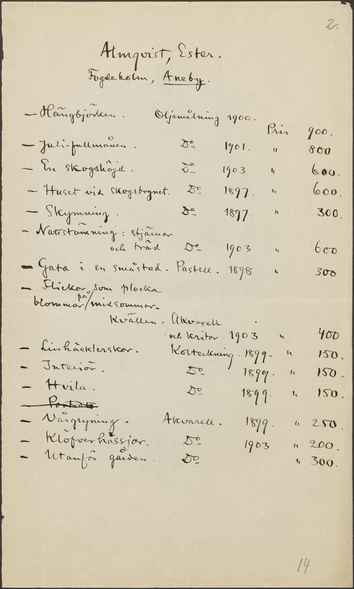 2.
Almqvist, Ester.
Fogdeholm, Aneby.
– Hängbjörken. Oljemålning 1900. Pris 900.
– Juli-fullmånen. Do 1901. " 800
– En skogshöjd. Do 1903 " 600.
– Huset vid skogsbrynet. Do 1897. " 600.
– Skymning. Do 1897 " 300.
– Nattstämning: stjärnor
och träd Do 1903 " 600
– Gata i en småstad. Pastell. 1898 " 300
– Flickor som plocka
blommor på midsommar-
kvällen. Akvarell
och kritor 1903 " 400
– Linhäcklerskor. Kolteckning 1899. " 150.
– Interiör. Do 1899. " 150.
– Hvila. Do 1899 " 150.
– Vårgryning. Akvarell. 1899. " 250.
– Klöfverhässjor. Do 1903 " 200.
– Utanför gården. Do " 300.
14